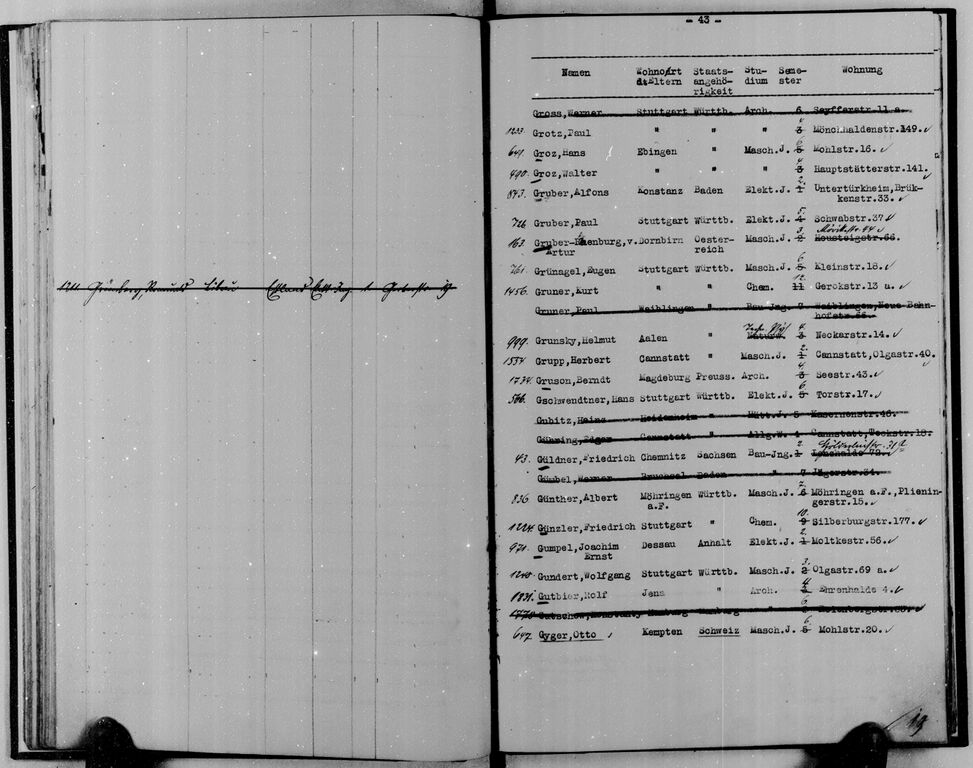 - 43 -
Namen Wohnort Staats- Stu- Seme- Wohnung
d.Eltern angehö- dium ster
rigkeit
Gross,Werner Stuttgart Württb. Arch. 6 Seyfferstr.11 a.
1233. Grotz,Paul " " " 3 Mönchhaldenstr.149.
641. Groz,Hans Ebingen " Masch.J. 5 Mohlstr.16.
490. Groz,Walter " " " 4. 3 Hauptstätterstr.141.
843. Gruber,Alfons Konstanz Baden Elekt.J. 2. 1 Untertürkheim,Brük-
kenstr.33.
726 Gruber,Paul Stuttgart Württb. Elekt.J. 5. 4 Schwabstr.37
163. Gruber- v. Dornbirn Oester- Masch.J. 3. 2 Mörikestr 44 Neusteigstr.66.
Artur reich
761. Grünagel,Eugen Stuttgart Württb. Masch.J. 6 5 Kleinstr.18.
1201 Libau Estland 1
1456. Gruner,Kurt " " Chem. 12. 11 Gerokstr.13 a.
Gruner,Paul Waiblingen " Bau-Jng. 7 Waiblingen,Neue Bahn-
hofstr.36.
999. Grunsky,Helmut Aalen " 4. 3 Neckarstr.14.
1554. Grupp,Herbert Cannstatt " Masch.J. 2. 1 Cannstatt,Olgastr.40.
1734. Gruson,Berndt Magdeburg Preuss. Arch. 4 3 Seestr.43.
566. Gschwendtner,Hans Stuttgart Württb. Elekt.J. 6. 5 Torstr.17.
Gubitz,Heinz Heidenheim " Hütt.J. 5 Kasernenstr.46.
Gühring,Edgar Cannstatt " Allg.W. 4 Cannstatt,Teckstr.18.
43. Güldner,Friedrich Chemnitz Sachsen Bau-Jng. 2 1 72.
Gümbel,Werner Bruchsal Baden " 7 Jägerstr.34.
836 Günther,Albert Möhringen Württb. Masch.J. 7. 6 Möhringen a.F.,Plienin-
a.F. gerstr.15.
1224. Günzler,Friedrich Stuttgart " Chem. 10. 9 Silberburgstr.177.
971. Gumpel,Joachim Dessau Anhalt Elekt.J. 2. 1 Moltkestr.56.
Ernst
1210. Gundert,Wolfgang Stuttgart Württb. Masch.J. 3. 2 Olgastr.69 a.
1831. Gutbier,Rolf Jena " Arch. 4 Ehrenhalde 4.
1770 Gutschow, Hamburg Hamburg "
647. Gyger,Otto Kempten Schweiz Masch.J. 6. 5 Mohlstr.20.